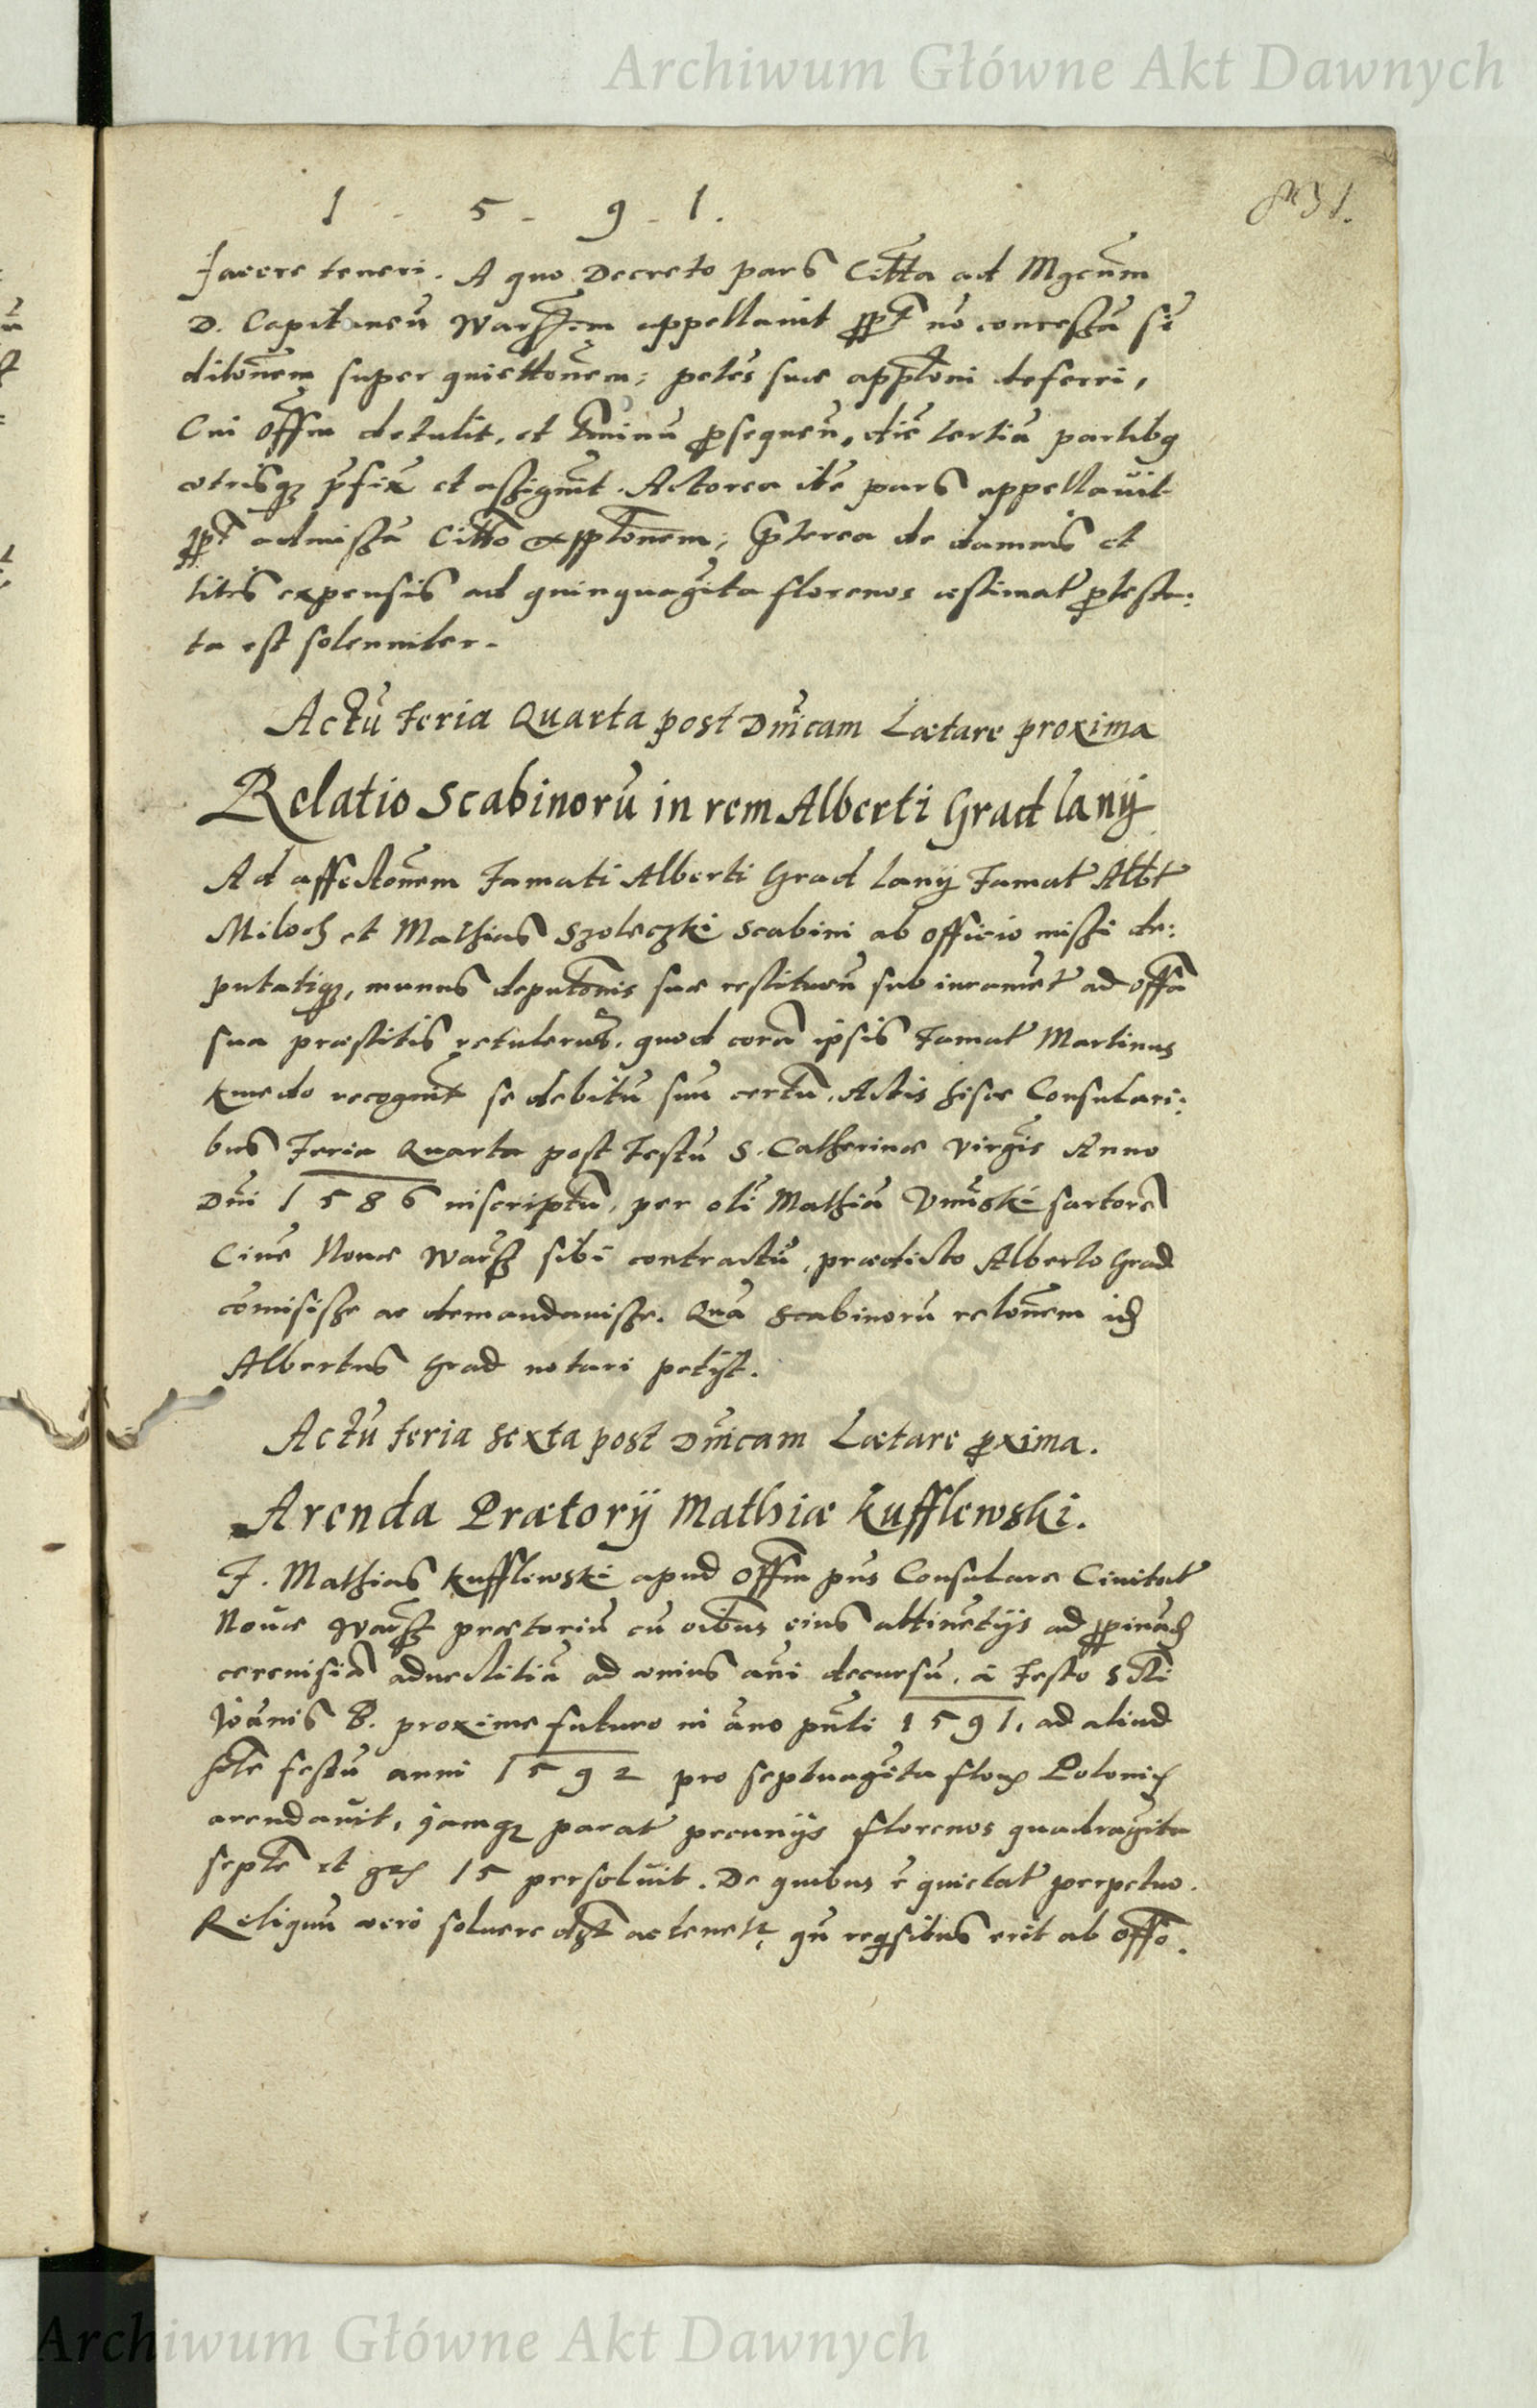 Archiwum Główne Akt Dawnych
1 - 5 - 9 - 1.
facere teneri. A quo Decreto pars Citta ad Mgcum
D. Capitaneu appellauit no concessa
ditonem super quiettonem; petes suae appltoni deferri,
Cui Offm detulit, et tminu prosequen, die tertia partibq
vtrisq3 pfix et assignit. Actorea ite pars appellauit
admissa Citto expltonem; Prterea de damnis et
litis expensis ad quinquagita florenos æstimat protesta:
ta est solenniter.
Actu Feria Quarta post Dnicam Lætare proxima
Relatio Scabinoru in rem Alberti Grad lanij
Ad affectonem Famati Alberti Grad lanij Famat Albt
Miloch et Mathias Szoleczki Scabini ab officio missi de:
putatiq3, munus deputonis suae restituen sub iuramet ad offa
sua præstitis retulerut. quod cora ipsis Famat Martinus
Kmedo recognit se debitu suu certu. Actis hisce Consulari:
bus Feria Quarta post Festu S. Catherinæ Virgis Anno
Dni 1586 inscriptu, per oli Mathia Vnuski sartore
Ciue Nouæ Warss sibi contractu, prædicto Alberto Grad
comisisse ac demandauisse. Qua Scabinoru relonem id
Albertus Grad notari petijt.
Actu Feria Sexta post Dnicam Lætare proxima.
Arenda Prætorij Mathiæ Kufflewski.
F. Mathias Kufflewski apud Offm pns Consulare Ciuitat
Nouæ Warss prætoriu cu oibus eius attinetijs ad propinad
cereuisia aduectitia ad vnius ani decursu, a Festo Scti
Joanis B. proxime futuro in ano pnti 1591, ad aliud
festu anni 1592 pro septuagita flor Polonic
arendauit, jamq3 parat pecunijs florenos quadragita
septe et gr 15 persoluit. De quibus e quietat perpetuo.
Reliquu vero soluere debt ac tenetr qn reqsitus erit ab offo.
Archiwum Główne Akt Dawnych